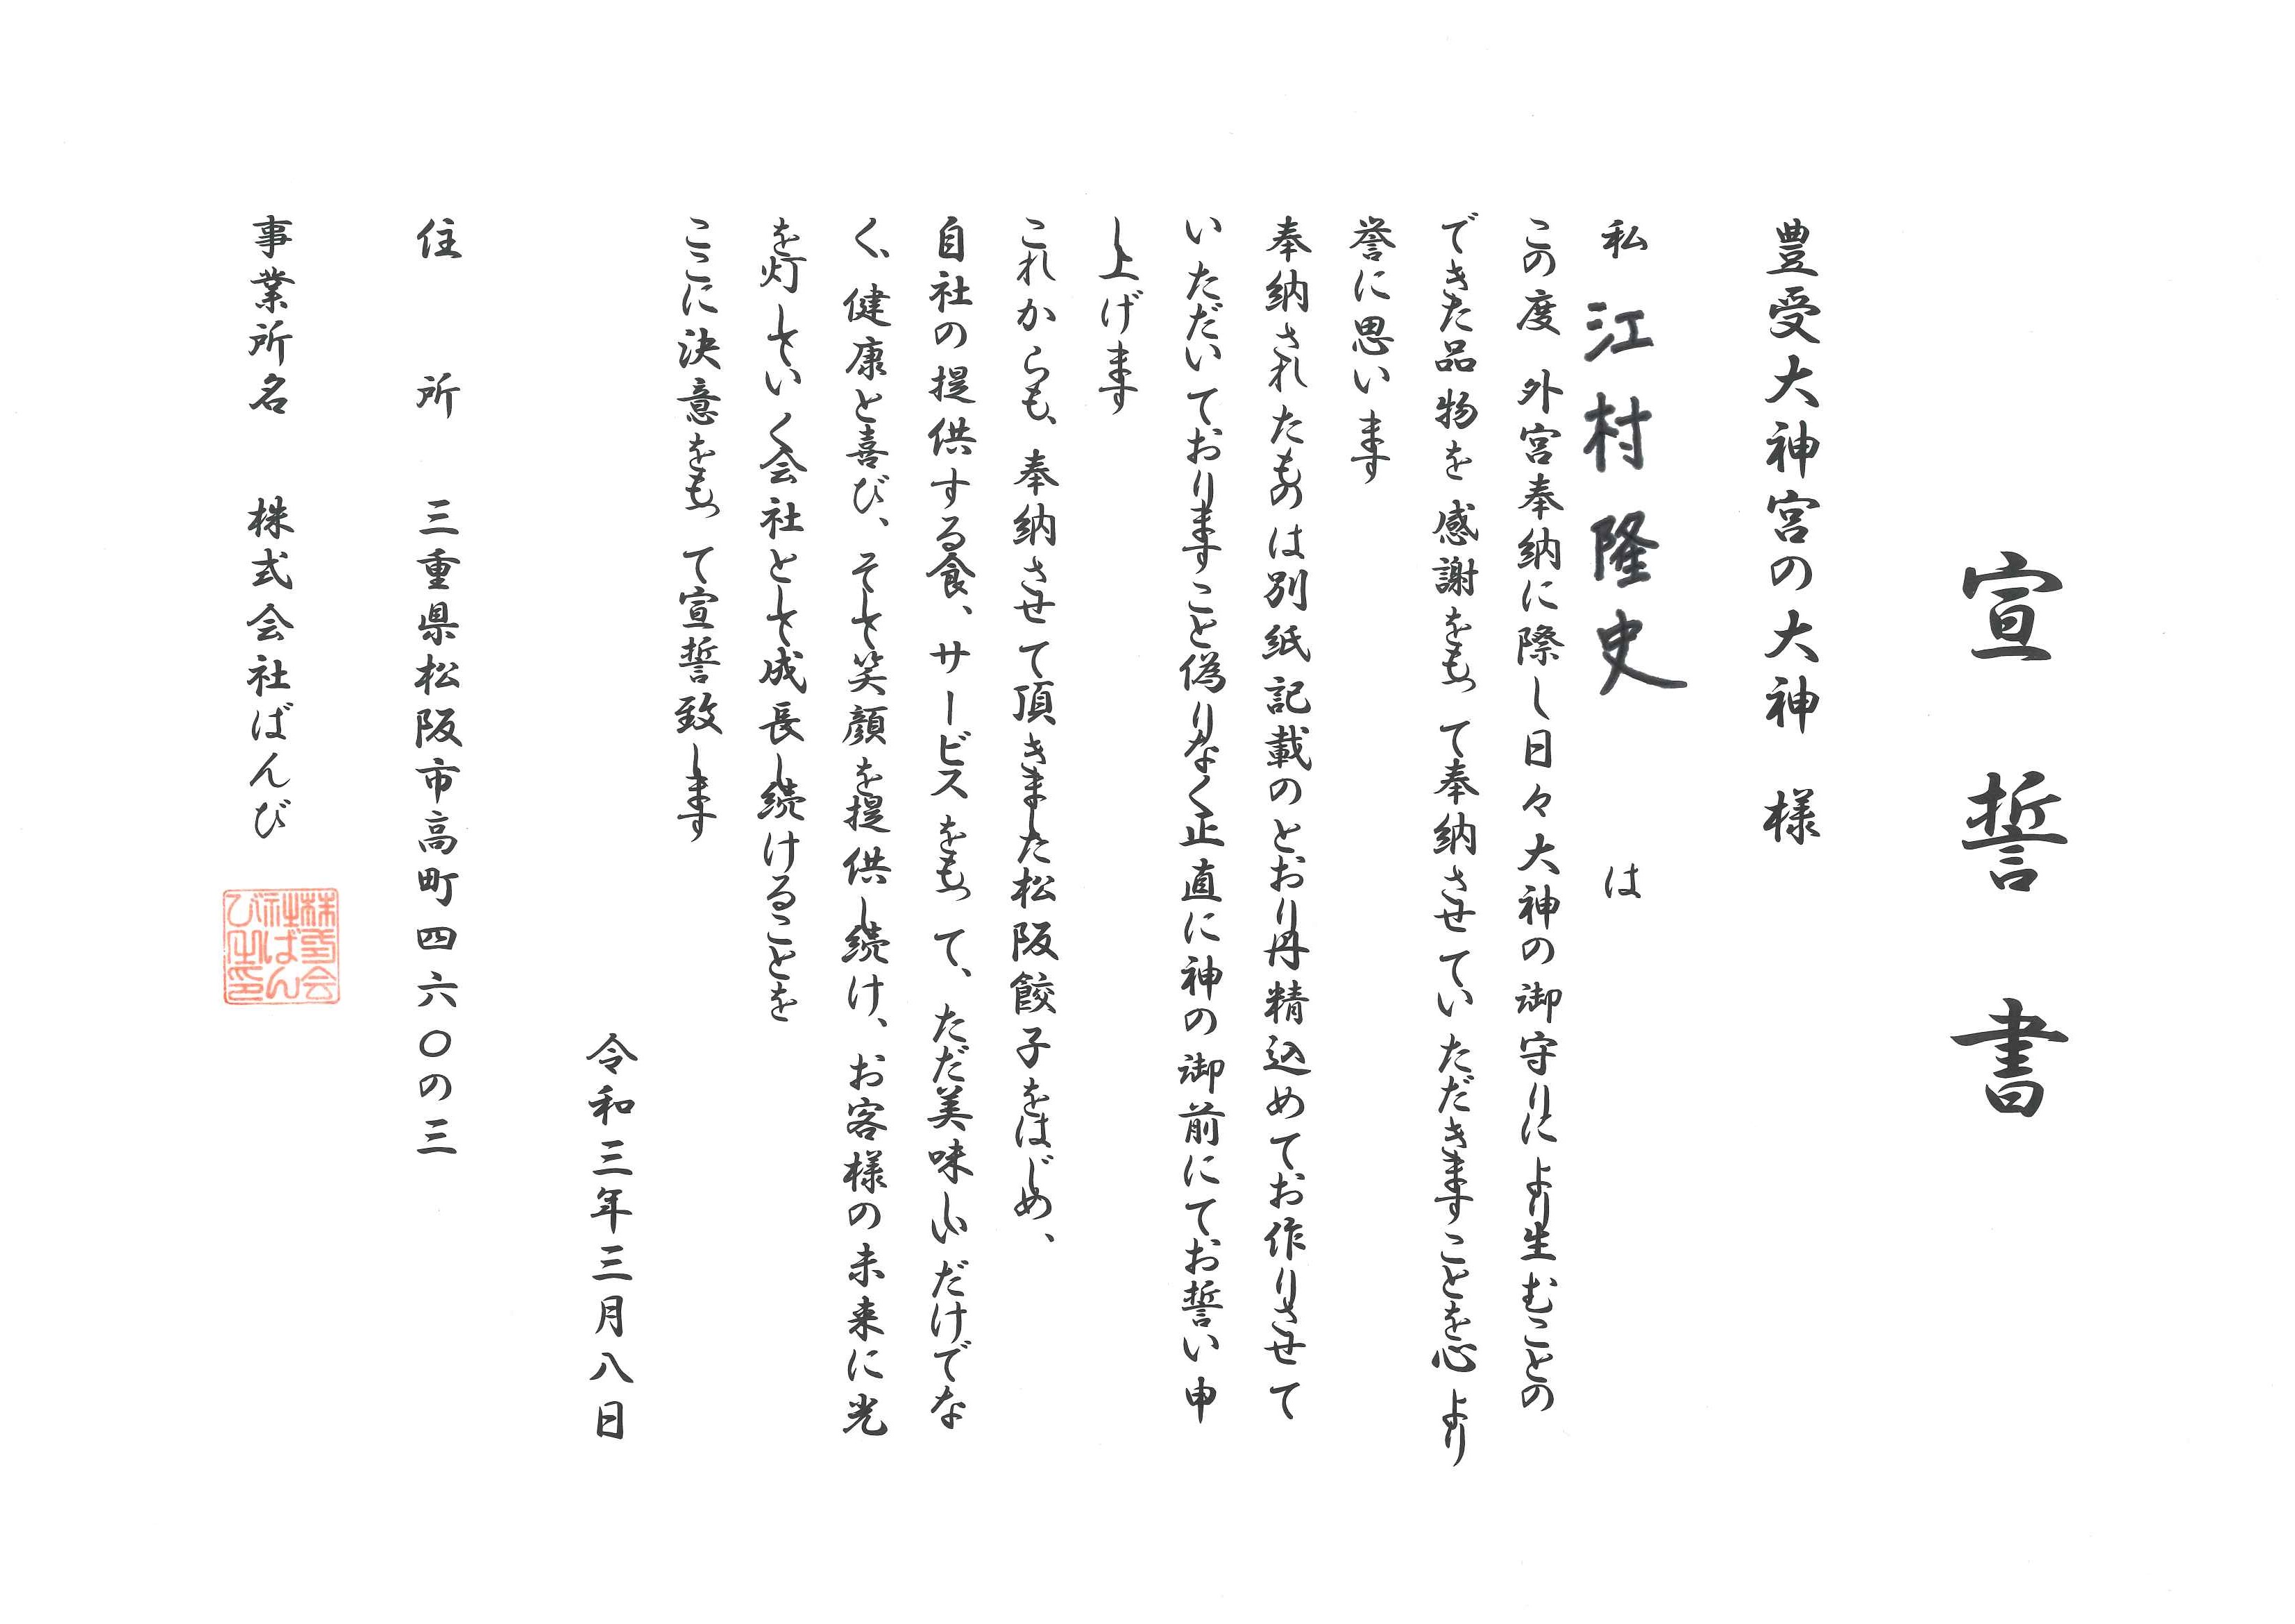 宣誓書
豊受大神宮の大神 様
私 江村隆史 は
この度 外宮奉納に際し日々大神の御守りにより生むことの
できた品物を感謝をもって奉納させていただきますことを心より
誉に思います
奉納されたものは別紙記載のとおり丹精込めてお作りさせて
いただいておりますこと偽りなく正直に神の御前にてお誓い申
し上げます
これからも、奉納させて頂きました松阪餃子をはじめ、
自社の提供する食、サービスをもって、ただ美味しいだけでな
く、健康と喜び、そして笑顔を提供し続け、お客様の未来に光
を灯していく会社として成長し続けることを
ここに決意をもって宣誓致します
令和三年三月八日
住所 三重県松阪市高町四六〇の三
事業所名 株式会社ばんび
株式会社ばんび之印